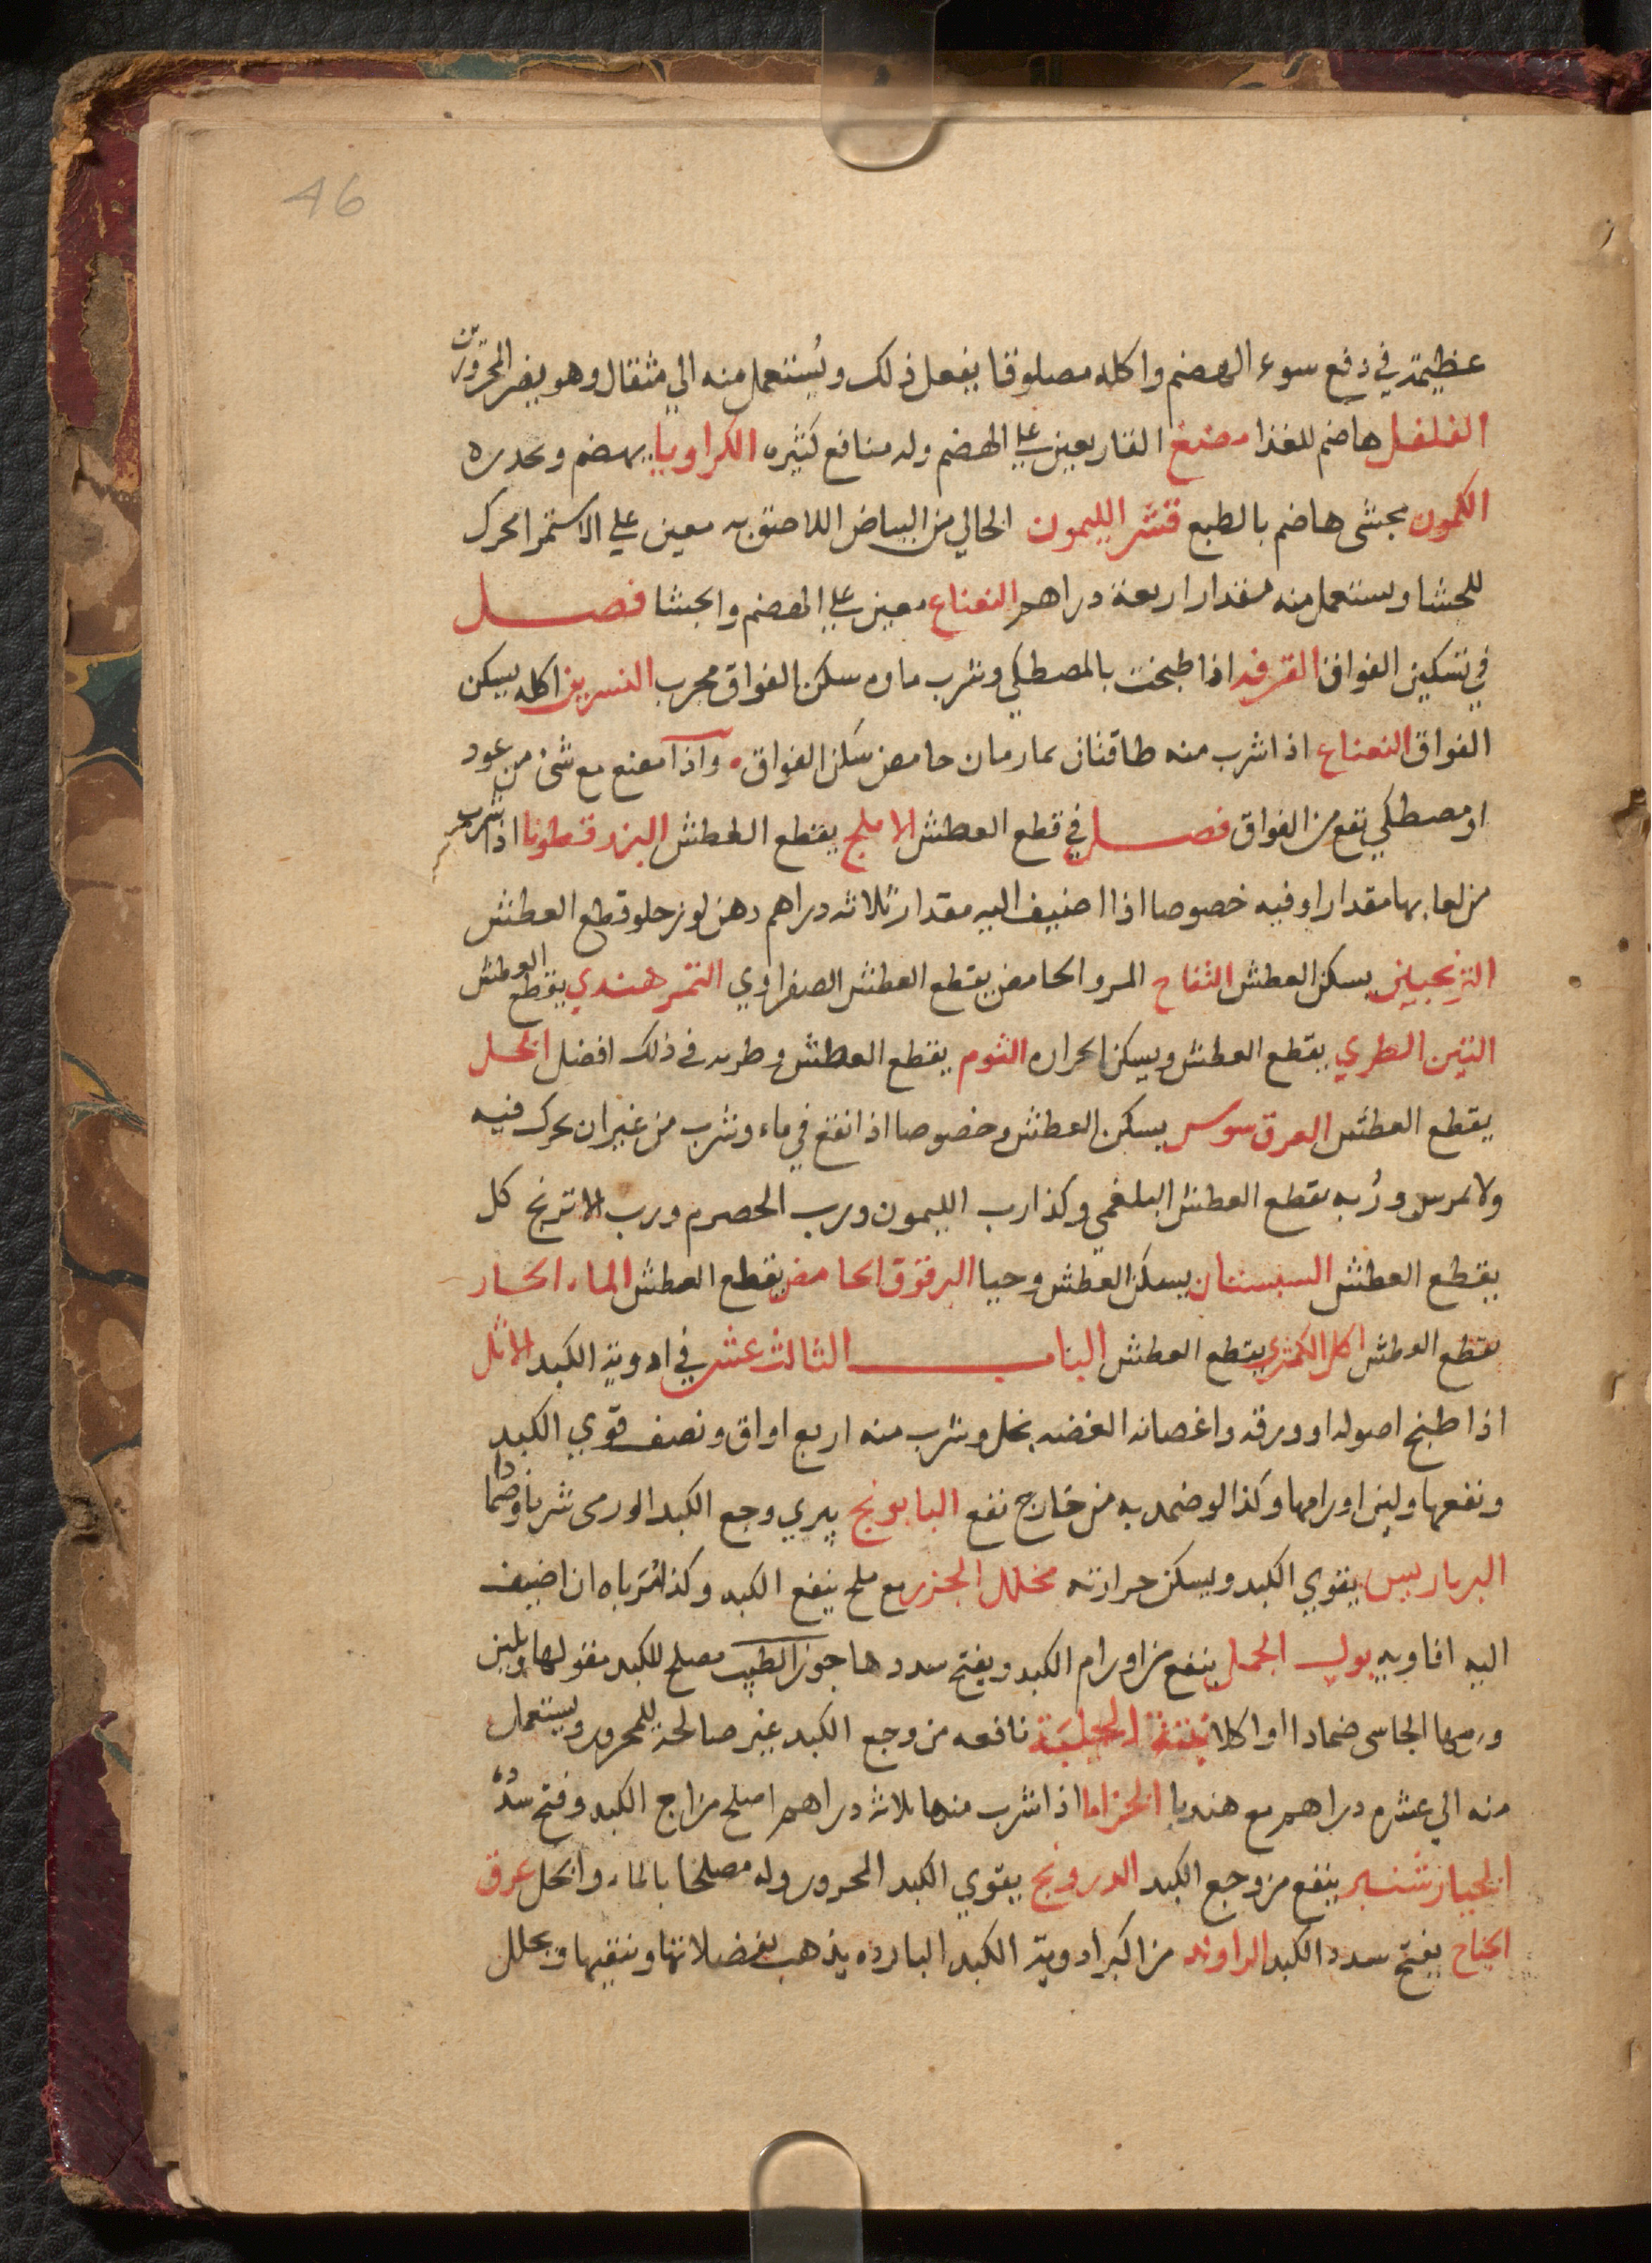 46
عظيمة في دفع سوء الهضم واكله مصلوقا يفعل ذلك ويُستعمل منه الي مثقال وهو يضر المحرورين
الفلفل هاضم للغذا مضغ القنا يعين علي الهضم وله منافع كثيره الكراويا يهضم ويحدره
الكمون يجشى هاضم بالطبع قشر الليمون الخالي من البياض اللاصق به معين علي الاستمرا محرك
للجشا ويستعمل منه مقدار اربعة دراهم النعناع معين علي الهضم والجشا فصل
في تسكين الفواق القرفه اذا طبخت بالمصطكي وشرب ماوه سكن الفواق مجرب النسرين اكله يسكن
الفواق النعناع اذا شرب منه طاقتان بما رمان حامض سكن الفواق واذا مضغ مع شئ من عود
او مصطكي نفع من الفواق فصل في قطع العطش الاملج يقطع العطش البزر قطونا اذا شرب
من لعابها مقدار اوقيه خصوصا اذا اضيف اليه مقدار ثلاثه دراهم دهن لوز حلو قطع العطش
الترنجبين يسكن العطش التفاح المر والحامض يقطع العطش الصفراوي التمر هندي يقطع العطش
التين الطري يقطع العطش ويسكن الحراره الثوم يقطع العطش وطريه في ذلك افضل الخل
يقطع العطش العرق سوس يسكن العطش وخصوصا اذا نقع في ماء وشرب من غير ان يحرك فيه
ولا يمرس ورُبه يقطع العطش البلغمي وكذا رب الليمون ورب الحصرم ورب الاترنج كل
يقطع العطش السبستان يسكن العطش وحيا البرقوق الحامض يقطع العطش الماء الحار
يقطع العطش اكل الكمثري يقطع العطش الباب الثالث عشر في ادوية الكبد الاثل
اذا طبخ اصوله او ورقه واغصانه الغضه بخل وشرب منه اربع اواق ونصف قوي الكبد
ونفعها ولين اورامها وكذا لو ضمد به من خارج نفع البابونج يبري وجع الكبد الورمى شربا وضمادا
البرباريس يقوي الكبد ويسكن حرارته مخلل الجزر مع ملح ينفع الكبد وكذا مُرباه ان اضيف
اليه افاويه بول الجمل ينفع من اورام الكبد ويفتح سددها جوز الطيب مصلح للكبد مقو لها ويلين
ورمها الجاسى ضمادا او اكلا الحلبة نافعه من وجع الكبد غير صالحة للمحرور ويستعمل
منه الي عشره دراهم مع هندبا الخزاما اذا شرب منها ثلاثة دراهم اصلح مزاج الكبد وفتح سدده
الخيارشنبر ينفع من وجع الكبد الدرونج يقوي الكبد المحرور وله مصلحا بالماء والخل عرق
الجناح يفتح سدد الكبد الراوند من اكبر ادوية الكبد البارده يذهب بفضلاتها وينقيها ويحلل